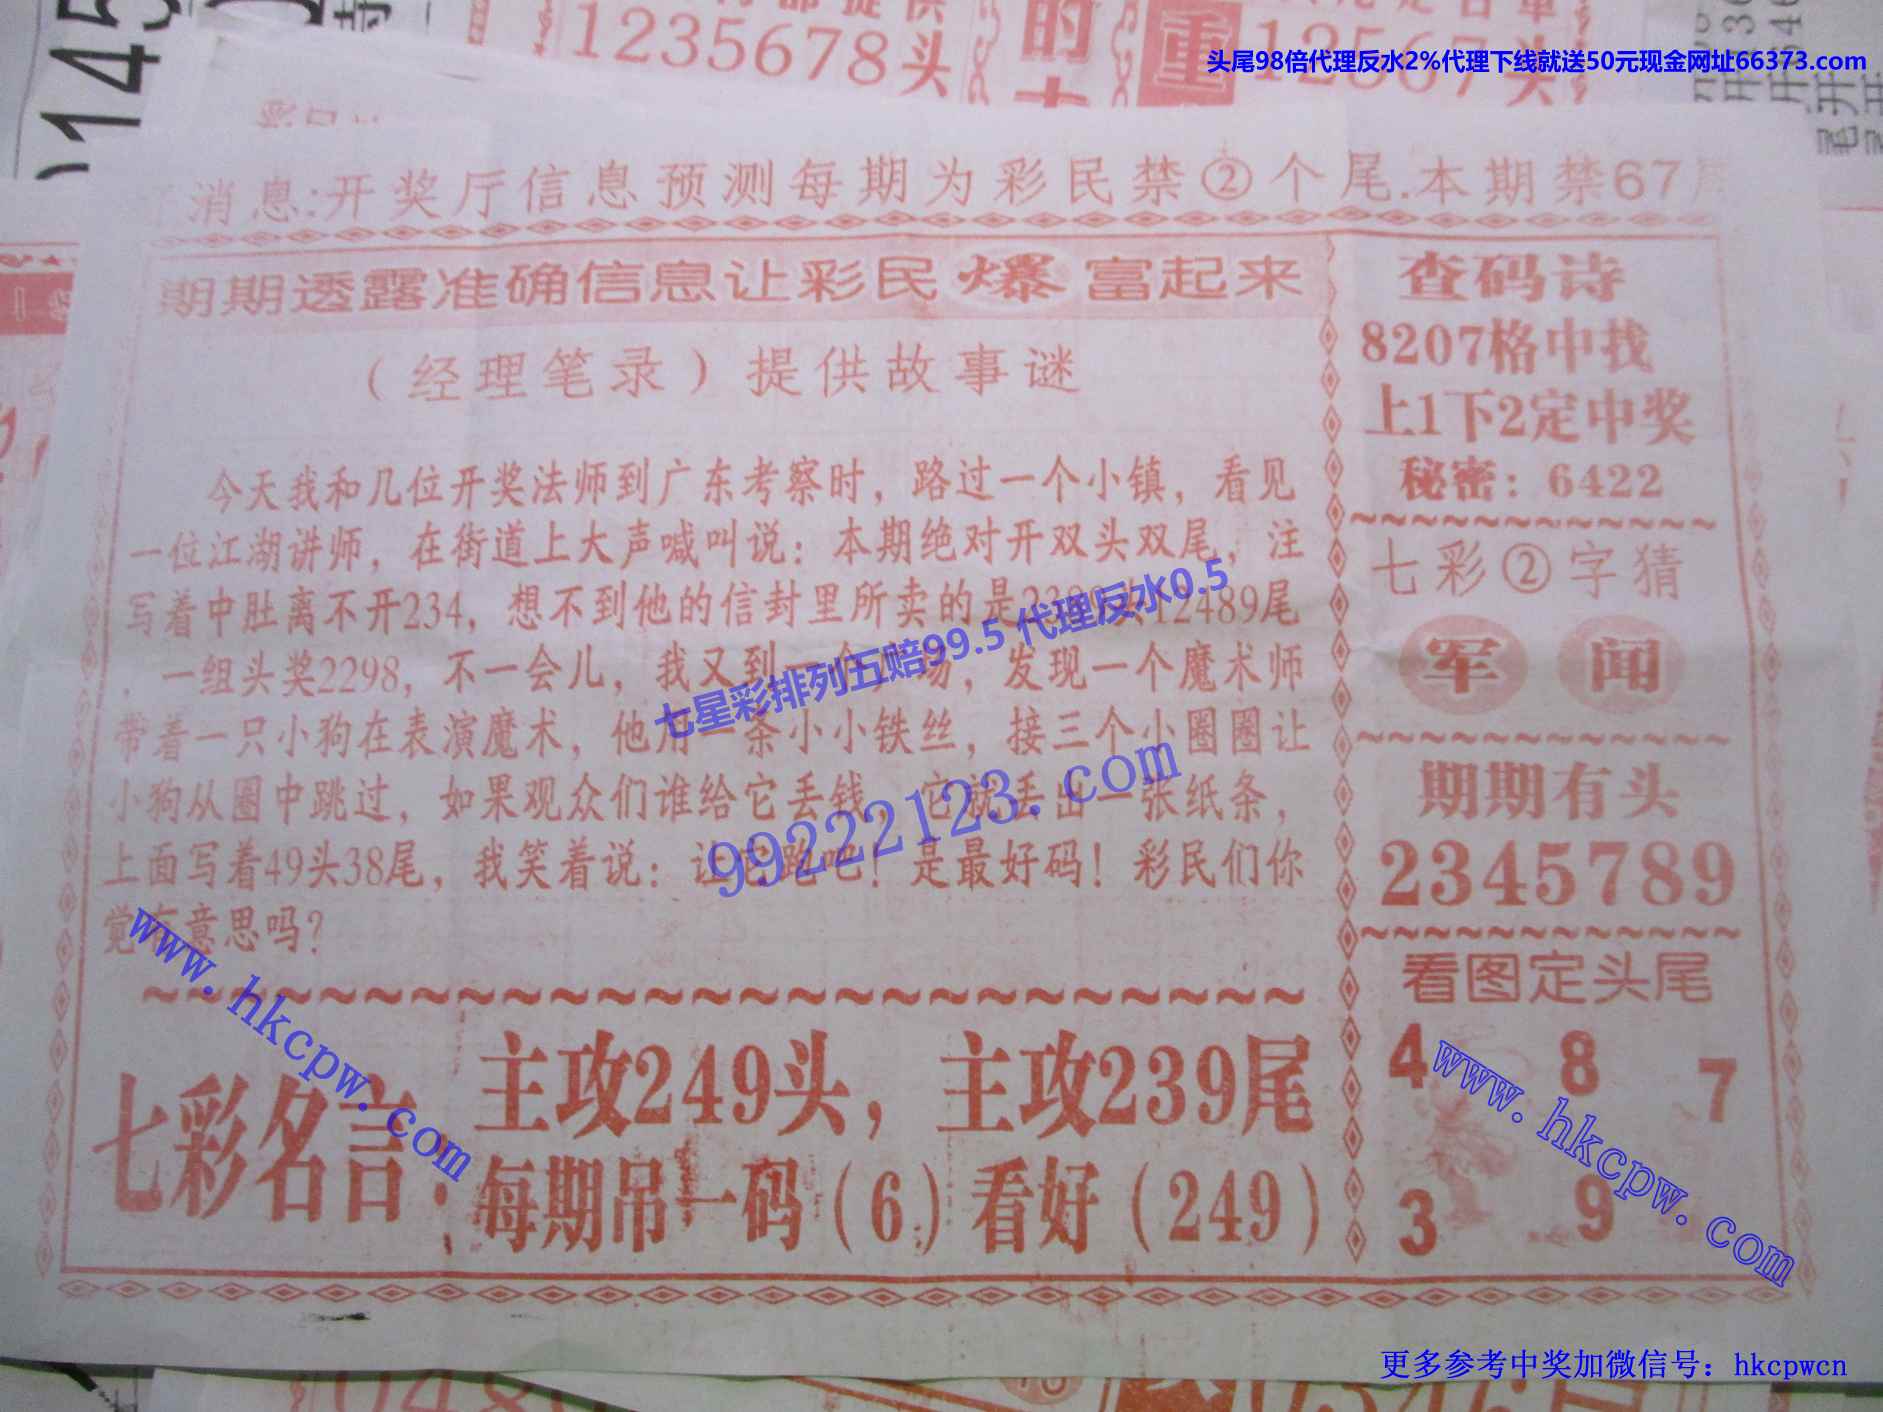 1235678头
的
重
12567头
头尾98倍代理反水2%代理下线就送50元现金网址66373.com
0145
消息:开奖厅信息预测每期为彩民禁②个尾.本期禁67尾
期期透露准确信息让彩民爆富起来
（经理笔录）提供故事谜
今天我和几位开奖法师到广东考察时，路过一个小镇，看见
一位江湖讲师，在街道上大声喊叫说：本期绝对开双头双尾，注
写着中肚离不开234，想不到他的信封里所卖的是 12489尾
，一组头奖2298，不一会儿，我又到一 ，发现一个魔术师
带着一只小狗在表演魔术，他用一条小小铁丝，接三个小圈圈让
小狗从圈中跳过，如果观众们谁给它丢钱，它就丢出一张纸条，
上面写着49头38尾，我笑着说：让它跑吧！是最好码！彩民们你
觉有意思吗？
七彩名言：
主攻249头，主攻239尾
每期吊一码（6）看好（249）
查码诗
8207格中找
上1下2定中奖
秘密：6422
七彩②字猜
军 闻
期期有头
2345789
看图定头尾
4 8 7
3 9
七星彩排列五赔99.5 代理反水0.5
99222123.com
www.hkcpw.com
www.hkcpw.com
更多参考中奖加微信号：hkcpwcn